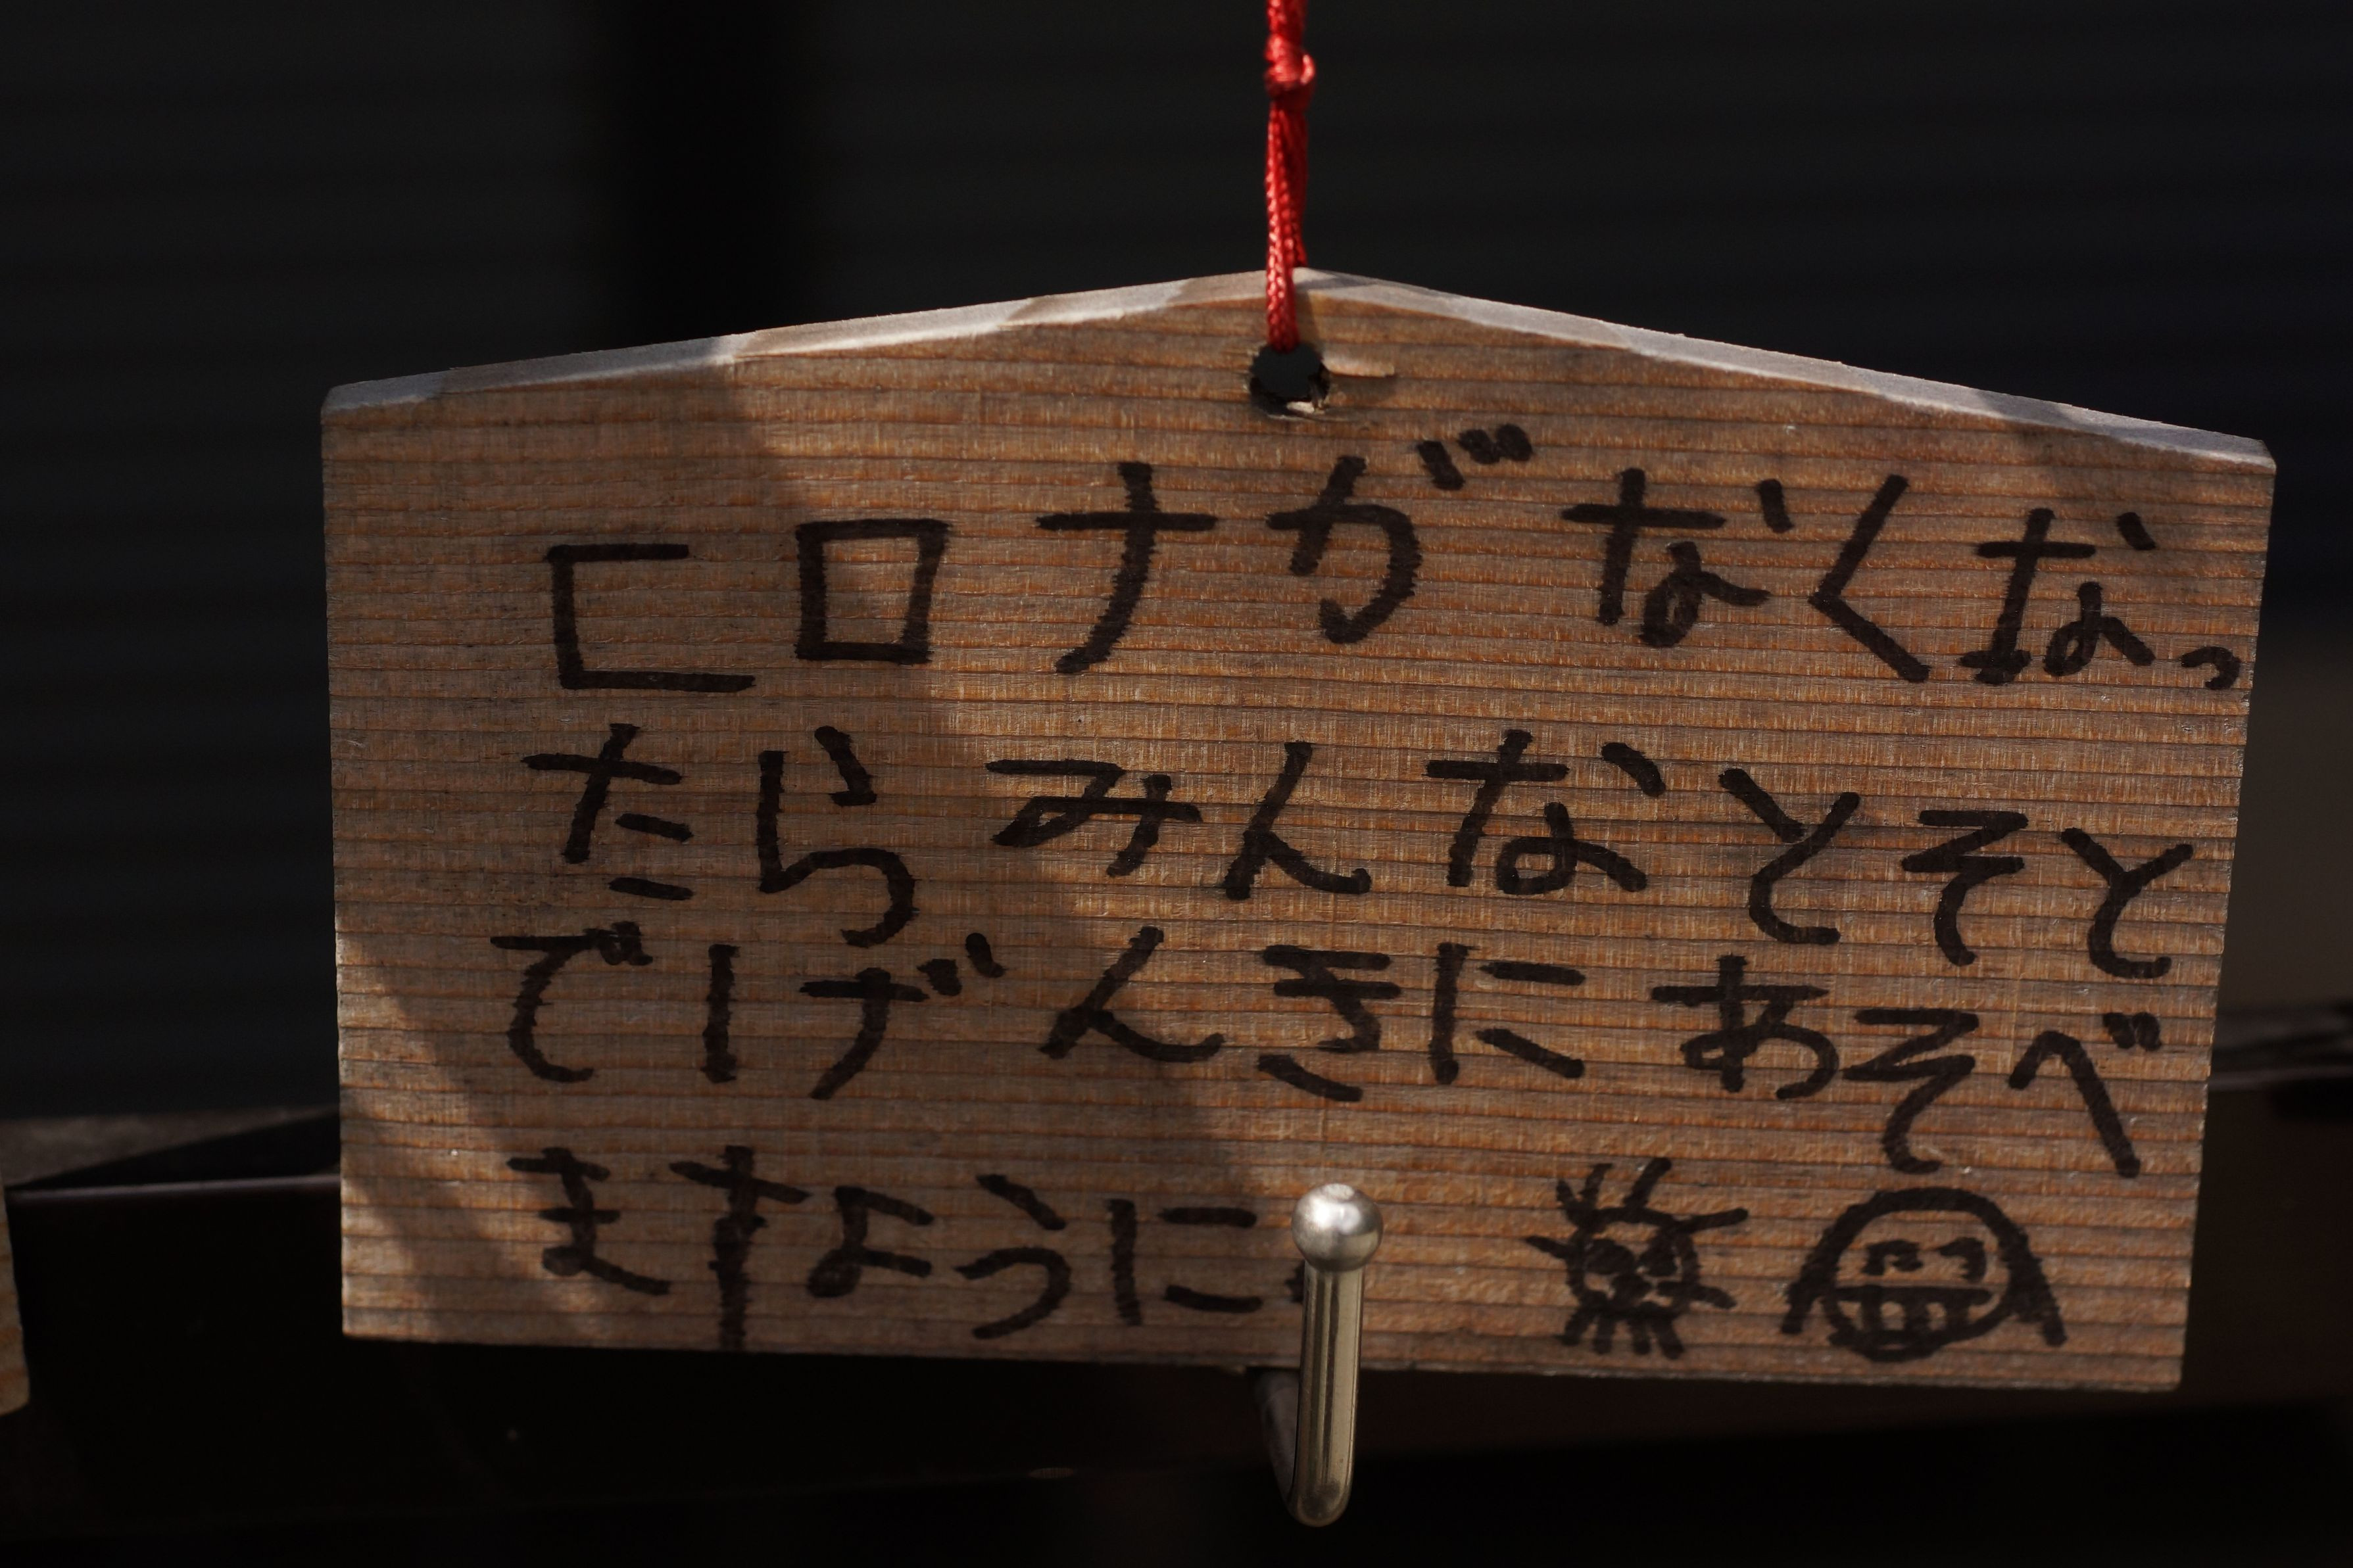 コロナがなくなっ
たらみんなとそと
でげんきにあそべ
ますように